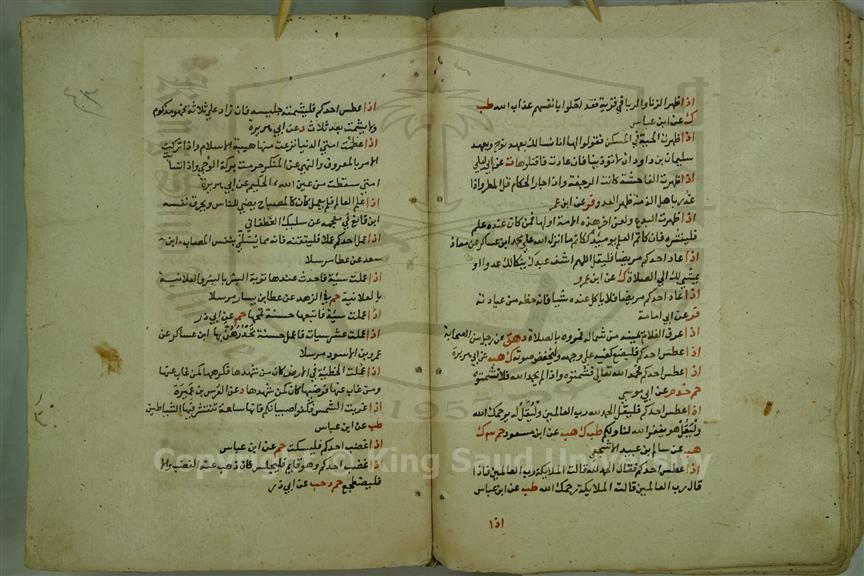 إذا ظهر الزنا والربا في قرية فقد احلوا بانفسهم عذاب الله طب
ك عن ابن عباس
إذا ظهرت الحية في المسكن فقولوا لها انا نسالك بعهد نوح وبعهد
سليمان بن داود ان لا توذينا فان عادت فاقتلوها ت عن ابي ليلى
إذا ظهرت الفاحشة كانت الرجفة واذا جار الحكام قل المطر واذا
غدر باهل الذمة ظهر العدو فر عن ابن عمر
إذا ظهرت البدع ولعن اخر هذه الامة اولها فمن كان عنده علم
فلينشره فان كاتم العلم يوميذ ككاتم ما انزل الله على محمد ابن عساكر عن معاذ
إذا عاد احدكم مريضا فليقل اللهم اشف عبدك ينكا لك عدوا او
يمشي لك الى الصلاة ك عن ابن عمرو
إذا عاد احدكم مريضا فلا ياكل عنده شيا فانه حظه من عيادته
فر عن ابي امامة
إذا عرف الغلام يمينه من شماله فمروه بالصلاة د هق عن رجل من الصحابة
إذا عطس احدكم فليضع كفيه على وجهه وليخفض صوته ك هب عن ابي هريرة
إذا عطس احدكم فحمد الله تعالى فشمتوه واذا لم يحمد الله فلا تشمتوه
حم خد م عن ابي موسى
إذا عطس احدكم فليقل الحمد لله رب العالمين وليقل له يرحمك الله
وليقل هو يغفر الله لنا ولكم طب ك هب عن ابن مسعود حم ٣ ك
هب عن سالم بن عبيد الاشجعي
إذا عطس احدكم فقال الحمد لله قالت الملايكة رب العالمين فاذا
قال رب العالمين قالت الملايكة رحمك الله طب عن ابن عباس
إذا
إذا عطس احدكم فليشمته جليسه فان زاد على ثلاثة فهو مزكوم
ولا يشمت بعد ثلاث د عن ابي هريرة
إذا عظمت امتي الدنيا نزعت منها هيبة الاسلام واذا تركت
الامر بالمعروف والنهي عن المنكر حرمت بركة الوحي واذا تسابت
امتي سقطت من عين الله الحكيم عن ابي هريرة
إذا علم العالم فلم يعمل كان كالمصباح يضي للناس ويحرق نفسه
ابن قانع في معجمه عن سليك الغطفاني
إذا عمل احدكم عملا فليتقنه فانه مما يسلي بنفس المصاب ابن
سعد عن عطا مرسلا
إذا عملت سيئة فاحدث عندها توبة السر بالسر والعلانية
بالعلانية حم في الزهد عن عطا بن يسار مرسلا
إذا عملت سيئة فاتبعها حسنة تمحها حم عن ابي ذر
إذا عملت عشر سيات فاعمل حسنة تحدرهن بها ابن عساكر عن
عمرو بن الاسود مرسلا
إذا عملت الخطيئة في الارض كان من شهدها فكرهها كمن غاب عنها
ومن غاب عنها فرضيها كان كمن شهدها د عن العرس بن عميرة
إذا غربت الشمس فكفوا صبيانكم فانها ساعة تنتشر فيها الشياطين
طب عن ابن عباس
إذا غضب احدكم فليسكت حم عن ابن عباس
إذا غضب احدكم وهو قايم فليجلس فان ذهب عنه الغضب والا
فليضطجع حم د حب عن ابي ذر
Copyright © King Saud University
1957